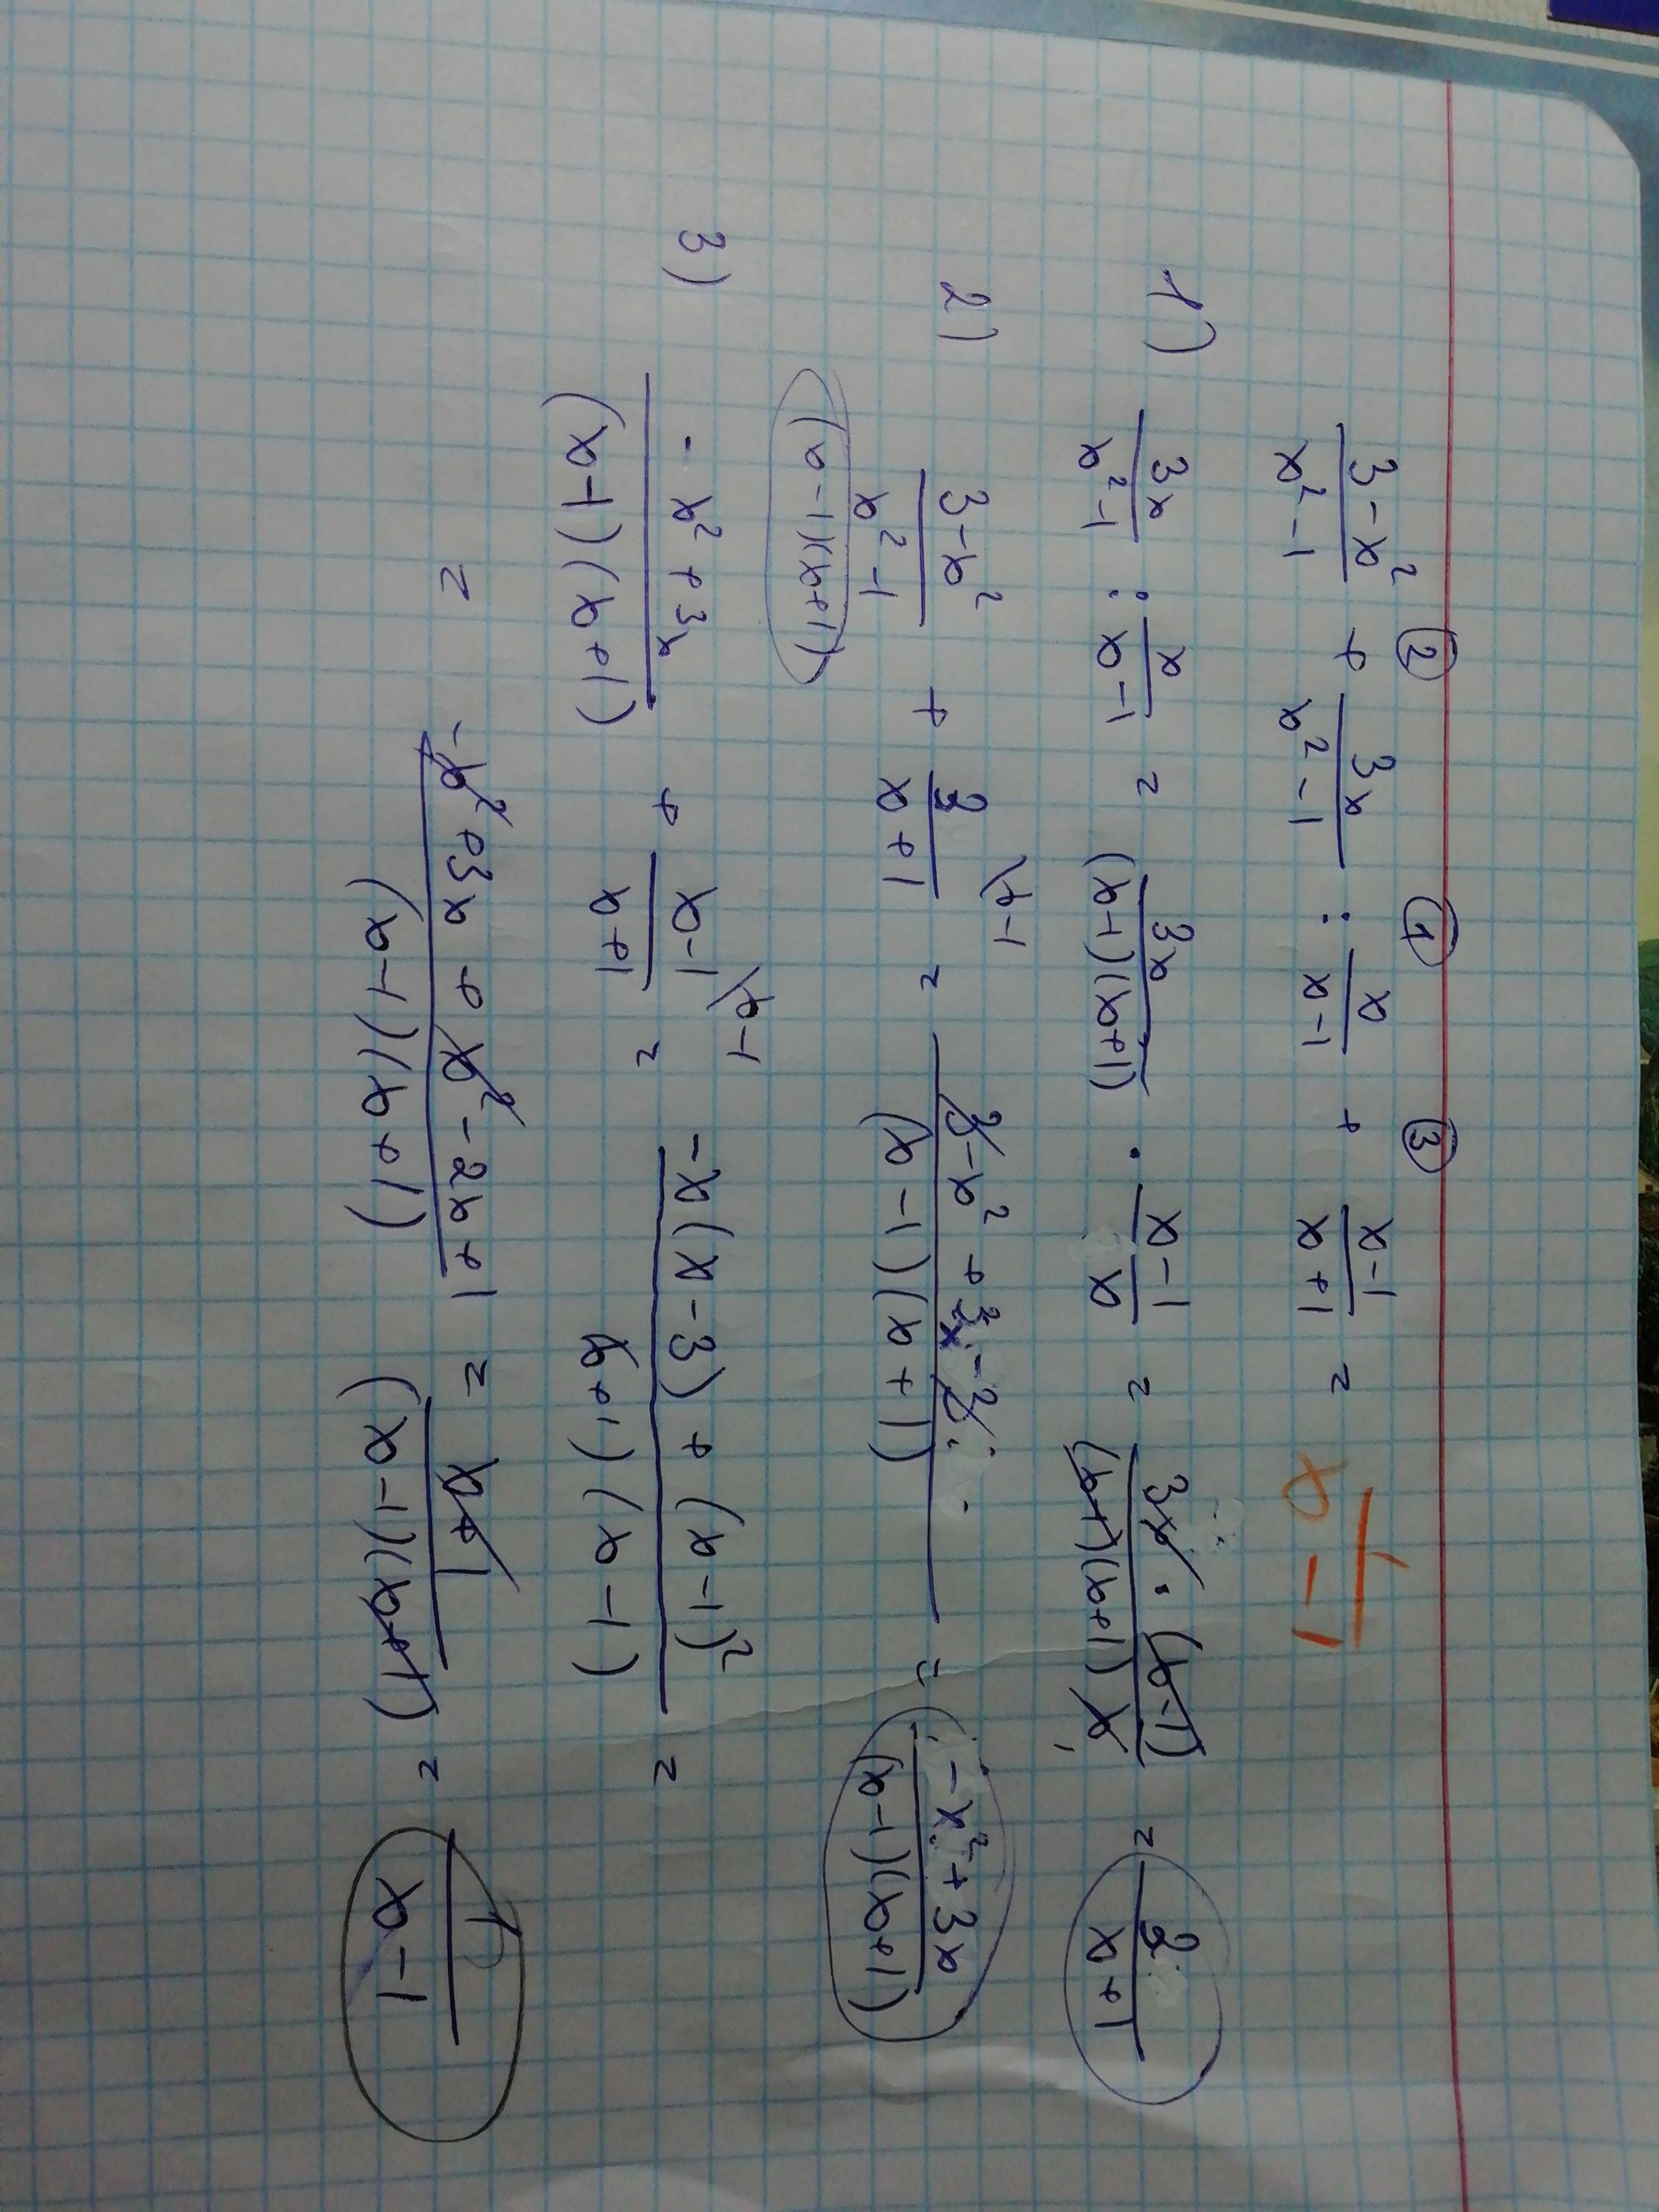 ② ① ③
(3-x²)/(x²-1) + 3x/(x²-1) : x/(x-1) + (x-1)/(x+1) = 1/(x-1)
1) 3x/(x²-1) : x/(x-1) = 3x/((x-1)(x+1)) · (x-1)/x = 3x·(x-1)/((x-1)(x+1)x) = 3/(x+1)
2) (3-x²)/(x²-1) + 3/(x+1) \x-1 = (3-x²+3x-3)/((x-1)(x+1)) = (-x²+3x)/((x-1)(x+1))
(x-1)(x+1)
3) (-x²+3x)/((x-1)(x+1)) + (x-1)/(x+1) \x-1 = (-x(x-3)+(x-1)²)/((x+1)(x-1)) =
= (-x²+3x+x²-2x+1)/((x-1)(x+1)) = (x+1)/((x+1)(x-1)) = 1/(x-1)